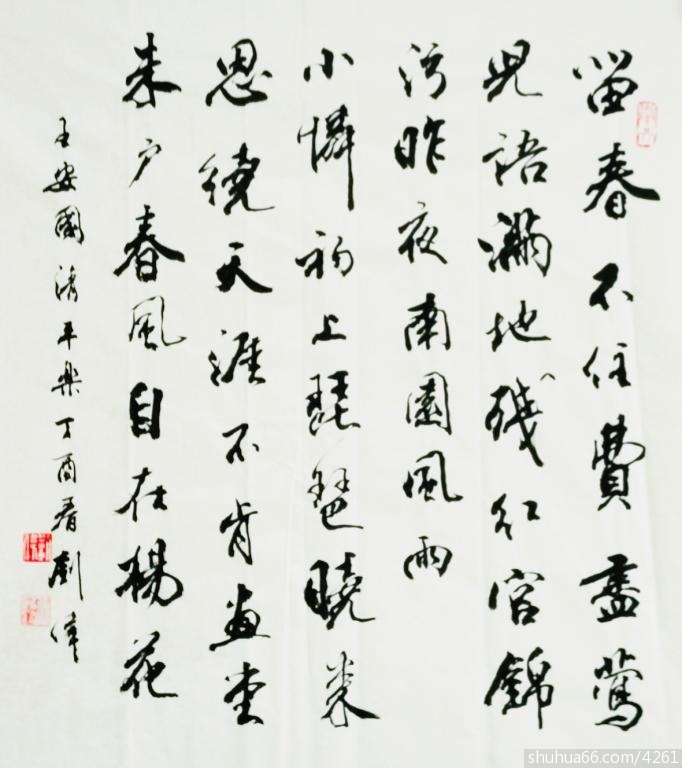 留春不住費盡鶯
児語滿地殘紅宮錦
污昨夜南園風雨
小憐初上琵琶曉来
思繞天涯不肯畫堂
朱户春風自在楊花
王安國清平樂丁酉春劉偉
shuhua66.com/4261